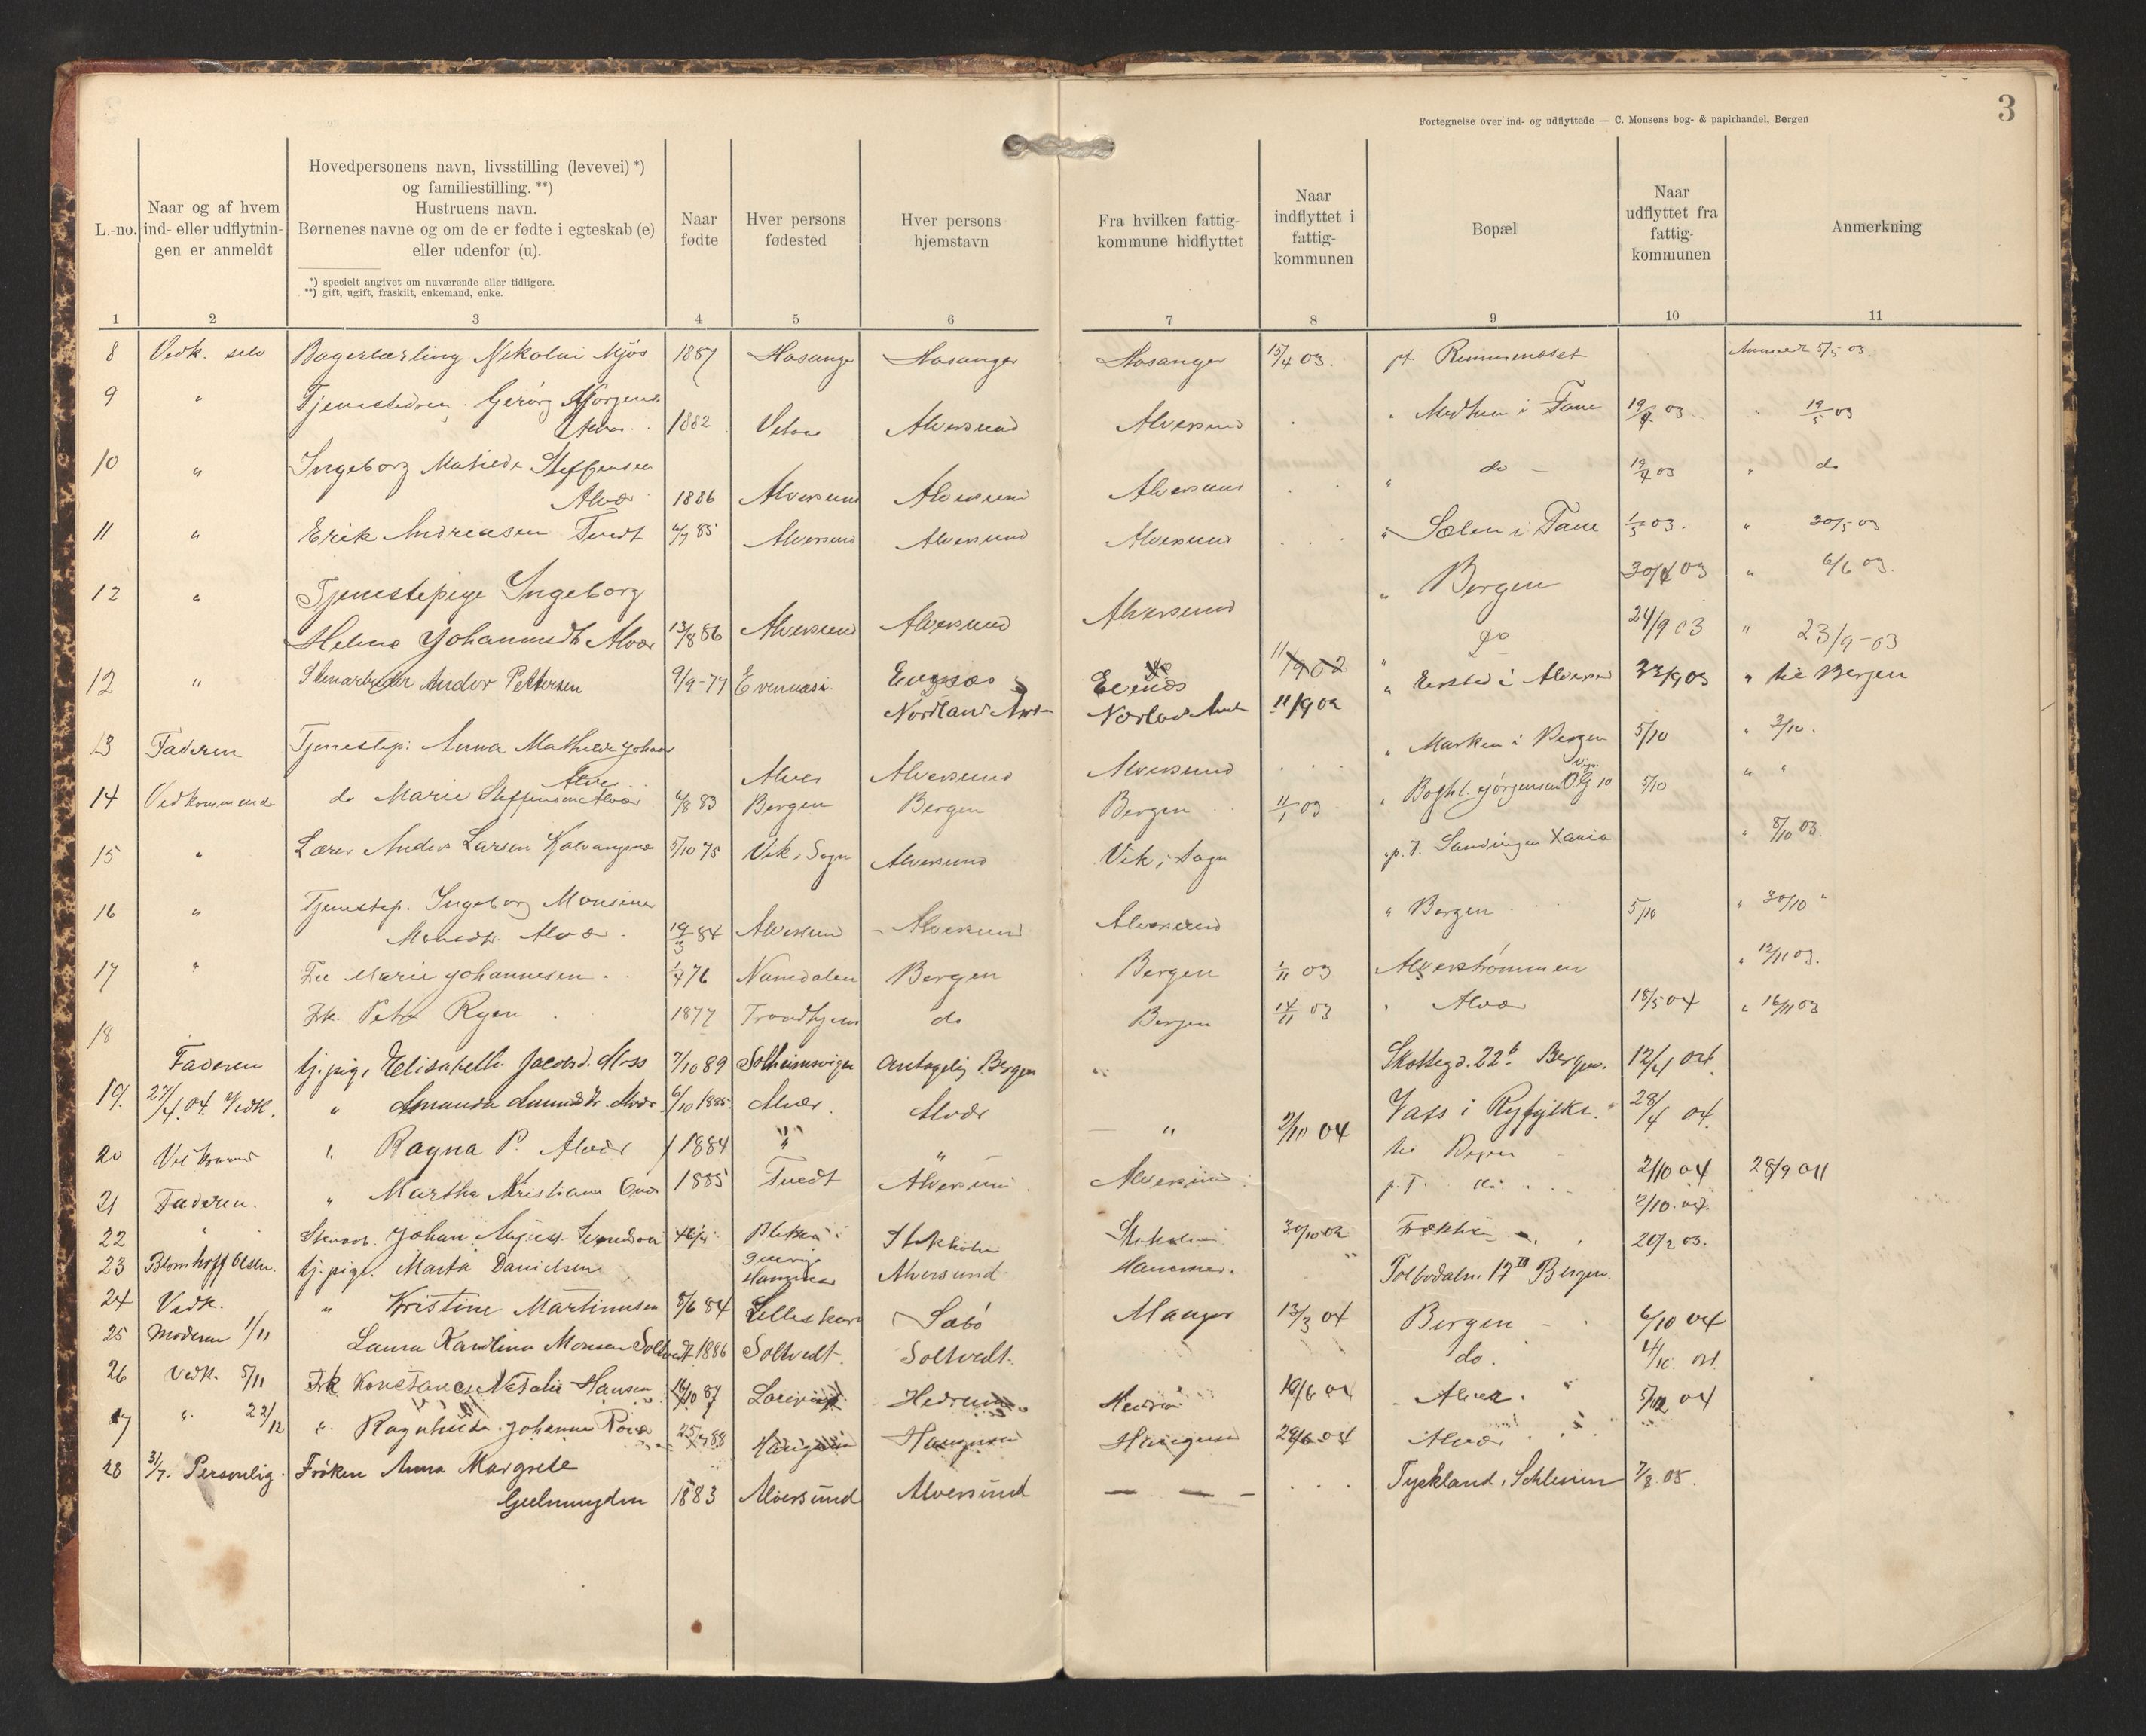 3
Fortegnelse over ind- og udflyttede — C. Monsens bog- & papirhandel, Bergen
L.-no.
Naar og af hvem
ind- eller udflytnin-
gen er anmeldt
Hovedpersonens navn, livsstilling (levevei) *)
og familiestilling. **)
Hustruens navn.
Børnenes navne og om de er fødte i egteskab (e)
eller udenfor (u).
*) specielt angivet om nuværende eller tidligere.
**) gift, ugift, fraskilt, enkemand, enke.
Naar
fødte
Hver persons
fødested
Hver persons
hjemstavn
Fra hvilken fattig-
kommune hidflyttet
Naar
indflyttet i
fattig-
kommunen
Bopæl
Naar
udflyttet fra
fattig-
kommunen
Anmerkning
1 2 3 4 5 6 7 8 9 10 11
8 Vedk. selv Bagerlærling Nikolai Mjøs 1887 Hosanger Hosanger Hosanger 15/4 03. pt 5/5 03.
9 " 1882 Alversund Alversund " i Fane 19/4 03 " 19/5 03
10 " Ingeborg Steffensen
Alvær 1886 Alversund Alversund Alversund " do — 19/4 03 " do
11 " Erik Andreasen Tvedt 4/7 85 Alversund Alversund Alversund " Sælen i Fane 1/5 03. " 30/5 03
12 " Tjenestepige Ingeborg " Bergen 30/4 03 " 6/6 03.
Helene Johannesdtr Alvær 13/8 86 Alversund Alversund Alversund " do 24/9 03 " 23/9-03
12 " Stenarbeider Andor Pettersen 9/9-77 Evenæs " i 23/9 03 " til Bergen
Nordland Amt 11/9 02
13 Faderen Tjenestep. Anna Mathilde
Alvær Alversund Alversund " Marken i Bergen 5/10 " 3/10.
14 Vedkommende do Marie Steffensen Alvær 6/8 83 Bergen Bergen Bergen 11/1 03 " Boghl. Jørgensen O.G. 10 5/10 " "
15 " Lærer Anders Larsen 5/10 75 Vik i Sogn Alversund Vik i Sogn p.t. Xania " 8/10 03.
16 " Tjenestep. Ingeborg Monsine
Alvær 19/3 84 Alversund Alversund Alversund " Bergen 5/10 " 30/10 "
17 " Marie Johannesen. 1/4 76 Namdalen Bergen Bergen 1/11 03 Alverstrømmen " 12/11 03.
18 Frk. Petra Ryen 1877 Trondhjem do Bergen 14/11 03 " Alvær 18/5 04 " 16/11 03
Faderen tj.pige Elisabeth Jacobsd. Moss 7/10 89 Solheimsvigen antagelig Bergen " Skottegd. 22b Bergen. 12/4 04.
19. 27/4. 04. Vedk. " Amanda Alvær 6/10 1885. Alvær. Alvær Vats i Ryfylke. 28/4 04.
20 " Ragna P. Alvær 1884 " " " 2/11 04 til Bergen
21 Faderen. " Martha Kristiane 1885 Tvedt Alversund Alversund p.t. do. 2/10 04 28/9 04
2/10. 04.
22 " Johan Stokholm 30/10 02 20/2 03.
23 Blomhoff Olsen. tj.pige. Marta Danielsen Hammer Alversund Hammer. " Tolbodalm. 17 Bergen.
24 Vedk. " Kristine Martinusen 8/6 84 Sæbø Manger 13/3 04 Bergen 6/10 04
25 Moderen 1/11 Laura Karolina Monsen Soltvedt 1886 Soltvedt. Soltvedt. do. 4/10. 04.
26 Vedk. 5/11 Frk Konstance Natalie Hansen 16/10 87 Hedrum Hedrum 10/6 04 Alvær. 5/12 04
27 " 22/12 " Ragnhilda Johanna 25/7 88 28/6 04 Alvær
28 31/7. Personlig. Frøken Anna Margrete
Geelmuyden 1883 Alversund Alversund — — — Tyskland, Schlesien 7/8. 05.